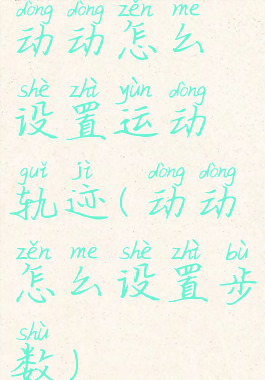 dòng dòng zěn me
动动怎么
shè zhì yùn dòng
设置运动
guǐ jì dòng dòng
轨迹(动动
zěn me shè zhì bù
怎么设置步
shù
数)